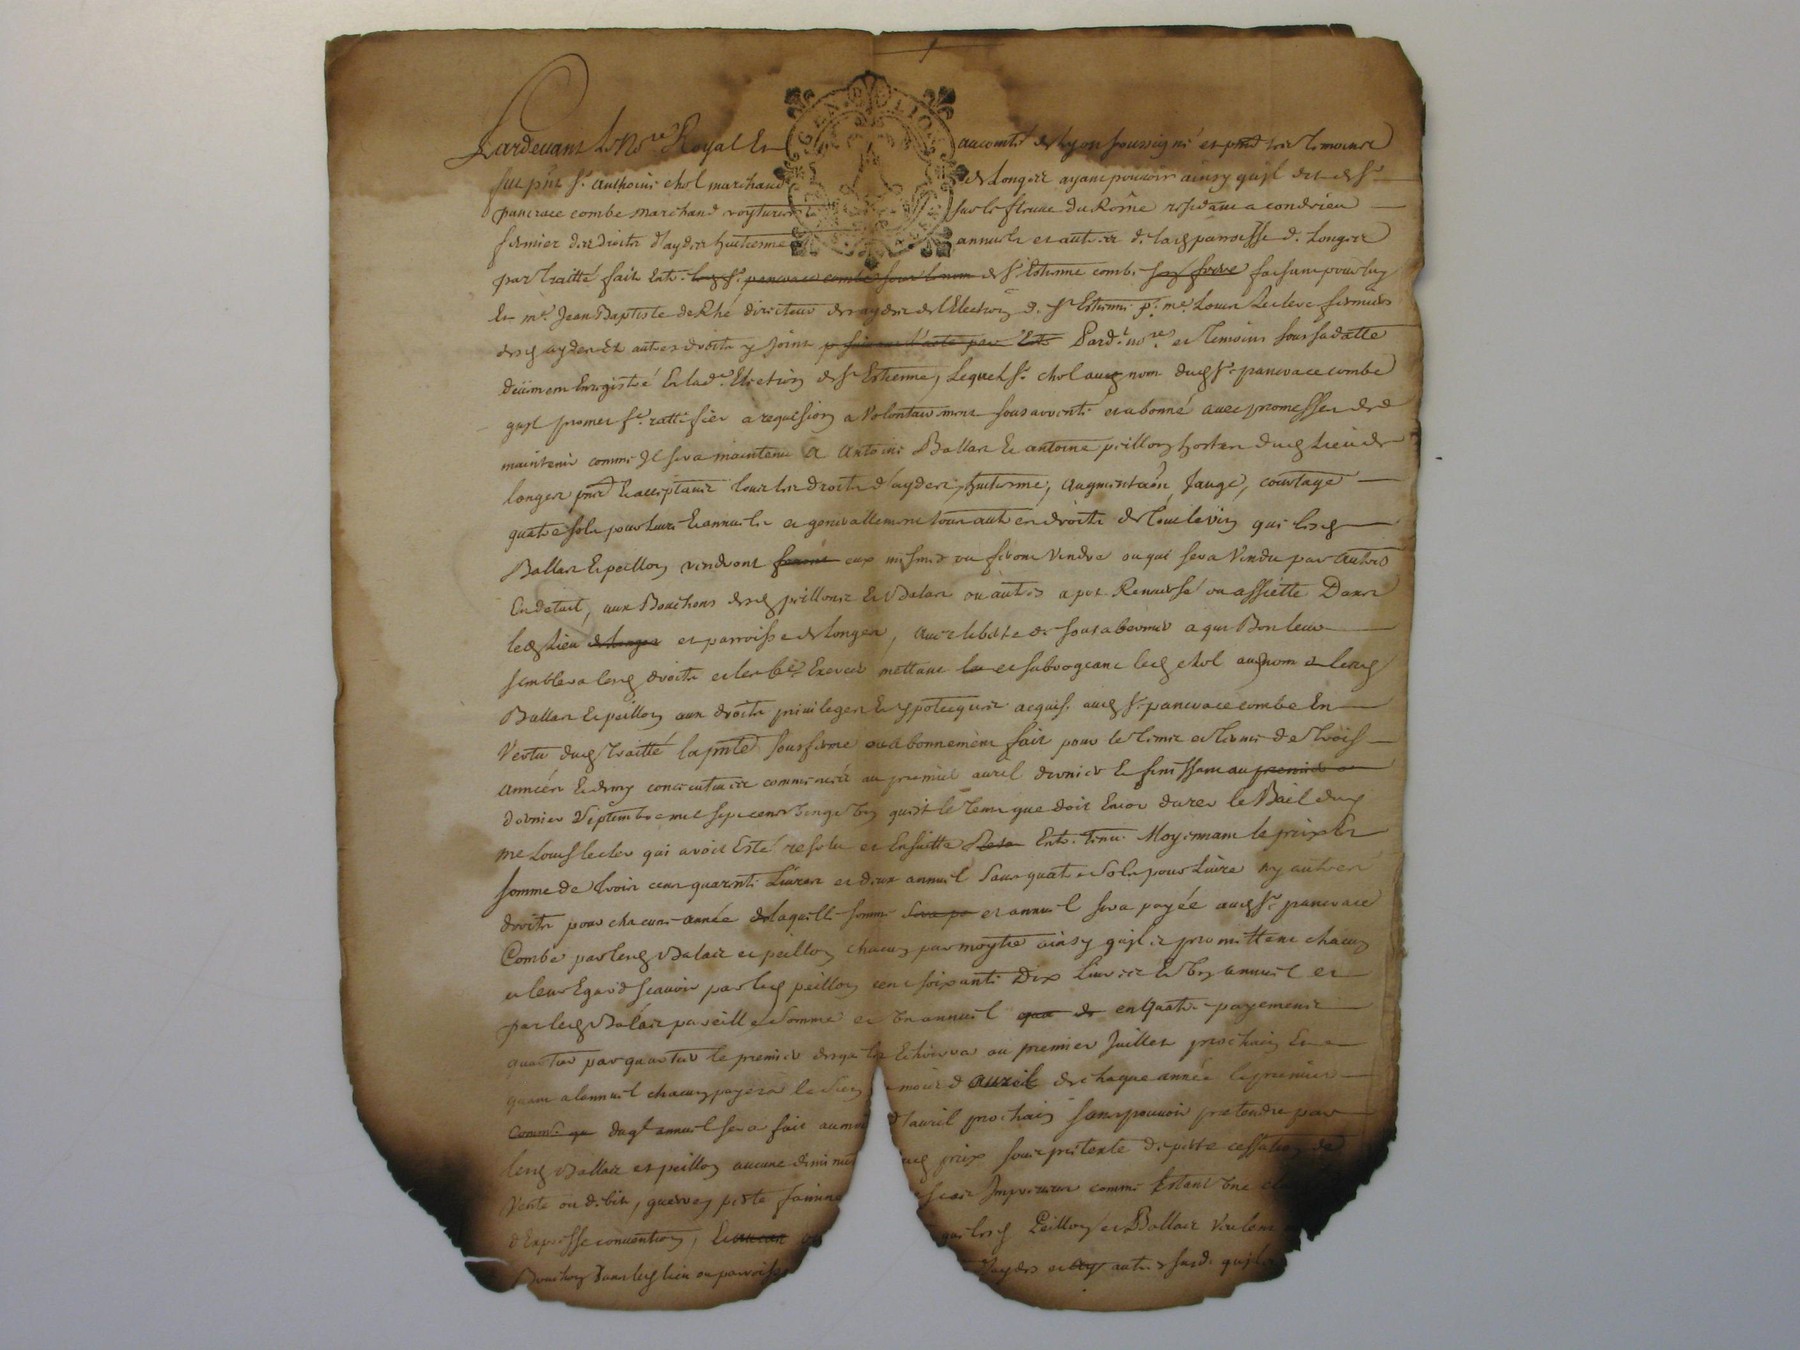 GEN. DE LION
Pardevant le No.re Royal Et au comté de Lyon soussigné et pntz les temoins
fut pnt Sr. Anthoine chol marchand de Longes ayant pouvoir ainsy quil dit de Sr
pancrace combe marchand voyturier sur le fleuve du Rône residant a condrieu
fermier des droits d'aydes huitieme annuels et autres de lad parroisse de Longes
par traitté fait Entre led Sr. pancrace combe sous le nom de Sr Estienne combe son frere faisant pour luy
Et me. Jean Baptiste de Rhé directeur des aydes de l'Election de St Estienne pr. me. Louis Leclerc fermier
desd aydes Et autres droits y joint Pardt. nores. et temoins sous sa datte
düement Enregistré En lad. Election de St Estienne, Lequel Sr. chol aud nom dud Sr. pancrace combe
quil promet fe. rattiffier a requision a volontairement sousarrenté et abonné avec promesse de
maintenir comme Il sera maintenu A Antoine Ballas Et antoine peillon hostes dud Lieu de
longes pnts Et acceptants tous les droits d'aydes, huitieme, augmentaôn, Jauge, courtage
quatre sols pour Livre Et annuels et generallement tous autres droits de tout le vin que lesd
Ballas Et peillon vendront eux mesmes ou feront vendre ou qui sera vendu par autres
En detail, aux Bouchons desd peillon Et Balas ou autres a pot Renversé ou assiette Dans
led Lieu de longes et parroisse de longes, avec liberté de sousabonner a qui Bon leur
semblera lesd droits et les fe. Exercer mettant et subrogeant led chol aud nom lesd
Ballas Et peillon aux droits privileges Et ypotecques acquis aud Sr. pancrace combe En
vertu dud traitté la pnte sousferme ou abonnement fait pour le tems et terme de trois
années Et demy consecutives commencées au premier avril dernier Et finissant au premier
dernier septembre mil sept cens vingt un qui est le tems que doit Encor durer le Bail dud
me Louis leclerc qui avoit Esté resolu et Ensuitte Entretenu Moyennant le prix Et
somme de trois cens quarente Livres et deux annuel sans quatre sols pour Livre ny autres
droits pour chacune année laquelle somme et annuel sera payée aud Sr pancrace
Combe par lesd Balas et peillon chacun par moytié ainsy quils promettent chacun
a leur Egard scavoir par led peillon cent soixante Dix Livres Et un annuel et
par led Balas pareille somme et un annuel en quatre payements
quartier par quartier le premier desquels Echoirra au premier Juillet prochain Et
quant a lannuel chacun payera le sien mois d avril de chaque année le premier
dud annuel sera fait au moi d'avril prochain sans pouvoir pretendre par
lesd Ballas et peillon aucune diminut prix sous pretexte de perte cessation de
vente ou debit, guerre, peste famine Impreveus comme Estant une
d'Expresse convention, que lesd Peillon et Ballas veulent
Bouchon dans led lieu ou parroisse d'aydes et autres